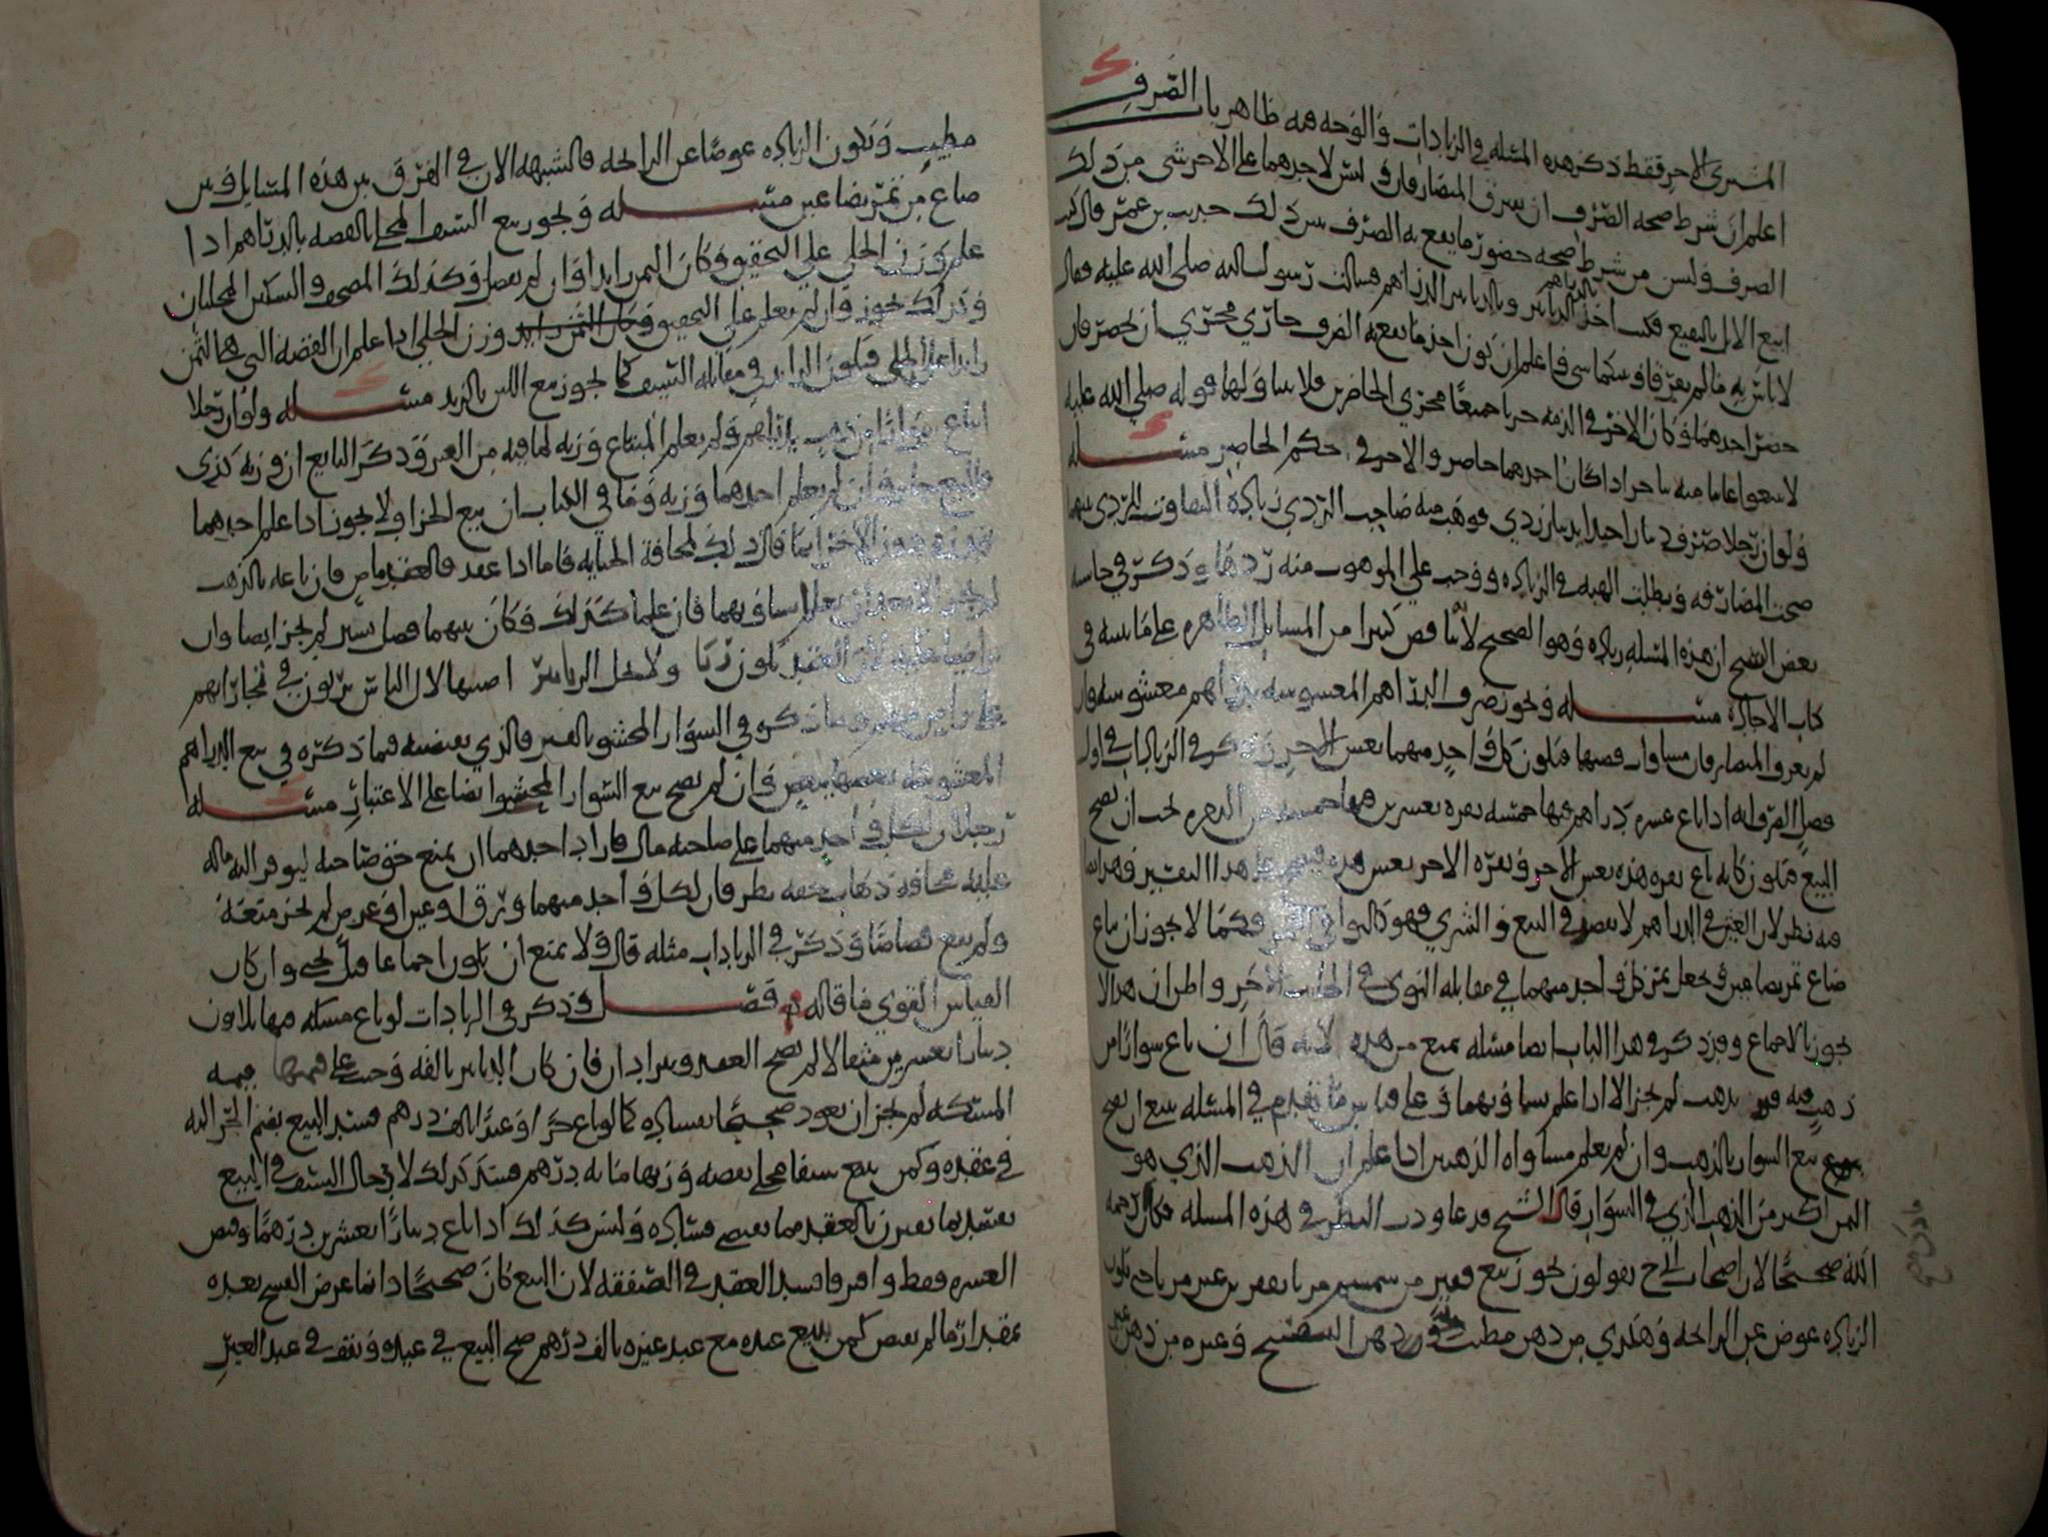 المشتري الاخر فقط ذكر هذه المسله في الزيادات والوجه فيه ظاهر باب الصرف
اعلم ان شرط صحه الصرف ان يفترق المتصارفان وليس لاحدهما على الاخر شي من ذلك
الصرف وليس من شرط صحه حضور ما يقع به الصرف يبين ذلك حديث بن عمر قال كنت
ابيع الابل بالبقيع فكنت اخذ الدنانير بالدراهم وبالدنانير الدراهم فسالت رسول الله صلى الله عليه فقال
لا باس به ما لم يفترقا وبينكما شي فاعلم ان يكون احد ما يقع به الصرف جاري مجرى ان يحضر فان
حضر احدهما وكان الاخر في الذمه جريا جميعا مجرى الحاضرين فلا ينا ولها قوله صلى الله عليه
لا تبيعوا غايبا منه بناجز اذا كان احدهما حاضر والاخر في حكم الحاضر مسئله
ولو ان رجلا صرف دينارا جيدا بدينار ردي فوهب منه صاحب الردي زياده التفاوت للردي بينهما
صحت المصارفه وبطلت الهبه في الزياده ووجب على الموهوب منه ردها وذكر في حاشيه
بعض النسخ ان هذه المسله زياده وهو الصحيح لانها تنقص كثيرا من المسايل الظاهره على ما نبينه في
كتاب الاجاره مسئله ويجوز صرف الدراهم المغشوشه بدراهم مغشوشه وان
لم يعرف المتصارفان مساواه فضتها فيكون كل واحد منهما بغش الاخر وذكر في الزيادات في اول
فصل الصرف انه اذا باع عشره دراهم فيها خمسه نقره بعشرين فيها خمسه من النقره يجب ان يصح
البيع فيكون كانه باع نقره هذه بغش الاخر ونقره الاخر بغش هذه على هذا التقدير وهذا
فيه نظر لان الغش في الدراهم لا يقصد في البيع والشري فهو كالنوى في التمر وكما لا يجوز ان يباع
صاع تمر بصاعين ويجعل تمر كل واحد منهما في مقابله النوى في الجانب الاخر واظن ان هذا لا
يجوز بالاجماع وقد ذكر في هذا الباب ايضا مسئله تمنع من هذه لانه قال ان باع سوارا من
ذهب فيه قير بذهب لم يجز الا اذا علم تساويهما وعلى قياس ما تقدم في المسئله ينبغي ان يصح
بيع السوار بالذهب وان لم يعلم مساواه الذهبين اذا علم ان الذهب الذي هو
الثمن اكثر من الذهب الذي في السوار قال الشيخ قد عاودت النظر في هذه المسله فكان رحمه
الله صحيحا لان اصحاب يقولون يجوز بيع قفيز من سمسم مربا بقفيزين غير مربا حتى يكون
الزياده عوض عن الرائحه وهكذي من دهن مطيب وردهن البنفسج وغيره من دهن غير
مطيب وتكون الزياده عوضا عن الرائحه فالشبهه الان في الفرق بين هذه المسايل وبين
صاع من تمر بصاعين مسئله ويجوز بيع السيف المحلى بالفضه بالدراهم اذا
علم وزن الحلي على التحقيق وكان الثمن زايدا فان لم يفصل وكذلك المصحف والسكين المحليان
وكذلك يجوز وان لم يعلم على التحقيق وكان الثمن زايد وزن الحلي اذا علم ان الفضه التي هي الثمن
زايدا على الحلي فيكون الزايد في مقابله السيف كما يجوز بيع اللبن بالزبد مسئله ولو ان رجلا
ابتاع سوارا من ذهب بدراهم ولم يعلم المبتاع وزنه لما فيه من القير وذكر البايع ان وزنه كذى
فالبيع جايز وان لم يعلم احدهما وزنه وما في الكتاب ان بيع الجزاف لا يجوز اذا علم احدهما
قدره دون الاخر انما قال ذلك لمخافة الجنايه فاما اذا عقد فالعقد ماض فان باعه بالذهب
لم يجز الا بعد ان يعلم تساويهما فان علما كذلك وكان بينهما فضل يسير لم يجز ايضا وان
تراضيا عليه لان العقد يكون ربا ولا يحل الربا بتراضيهما لان الناس يربون في تجاراتهم
على تراض منهم وما ذكر في السوار المحشو بالقير فالذي يقتضيه فيما ذكره في بيع الدراهم
المغشوشه بعضها ببعض وان لم يصح بيع السوار المحشوا ايضا على الاعتبار مسئله
رجلان لكل واحد منهما على صاحبه مال فاراد احدهما ان يمنع حق صاحبه ليوفر اليه ماله
عليه مخافه ذهاب حقه نظر فان لكل واحد منهما ورق او عين او عرض لم يجز منعه
ولم يبع قصاصا وذكر في الزيادات مثله قال ولا يمتنع ان يكون اجماعا قبل يحيى وان كان
القياس القوي ما قاله م فصل وذكر في الزيادات لو باع مسكه فيها ثلاثون
دينارا بعشرين مثقالا لم يصح العقد ويترادان فان كان الدنانير تالفه وجب على قيمتها قيمه
المسكه لم يجز ان يعود صحيحا بمشاركه كما لو باع كرا وعبدا بالف درهم فسد البيع بضم الحر اليه
في عقده وكمن يبيع سيفا محلى بفضه وزنها مائه درهم فسد كذلك لان حال السيف في البيع
يفسد بما يقترن بالعقد مما يقتضي مشاركه وليس كذلك اذا باع دينارا بعشرين درهما وقبض
العشره فقط وافترقا فسد العقد في الصفقه لان البيع كان صحيحا وانما عرض الفسخ بعده
بمقدار ما لم يقبض كمن يبيع عبده مع عبد غيره بالف درهم صح البيع في عبده ووقف في عبد الغير